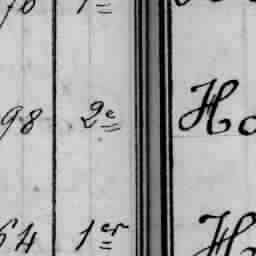 98 2e Ho
64 1er H